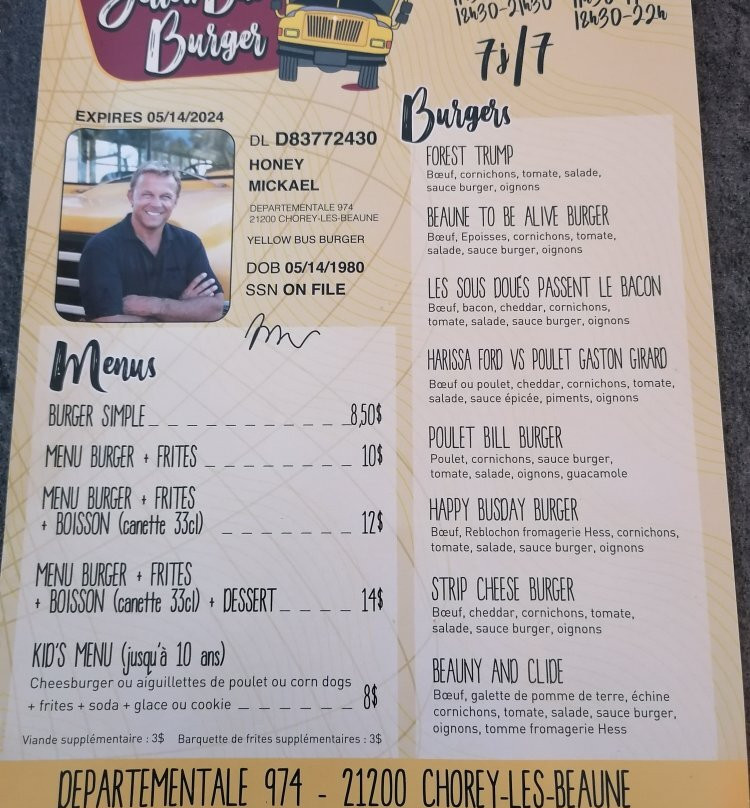 Burger
12h30-21h30
12h30-22h
7j/7
EXPIRES 05/14/2024
DL D83772430
HONEY
MICKAEL
DEPARTEMENTALE 974
21200 CHOREY-LES-BEAUNE
YELLOW BUS BURGER
DOB 05/14/1980
SSN ON FILE
Menus
BURGER SIMPLE_ _ _ _ _ _ _ _ _ _ _ _8,50$
MENU BURGER + FRITES _ _ _ _ _ _ _ _ 10$
MENU BURGER + FRITES
+ BOISSON (canette 33cl) _ _ _ _ _ _ _ 12$
MENU BURGER + FRITES
+ BOISSON (canette 33cl) + DESSERT_ _ _ _ 14$
KID'S MENU (jusqu'à 10 ans)
Cheesburger ou aiguillettes de poulet ou corn dogs
+ frites + soda + glace ou cookie _ _ _ _ _ _ 8$
Viande supplémentaire : 3$ Barquette de frites supplémentaires : 3$
Burgers
FOREST TRUMP
Bœuf, cornichons, tomate, salade,
sauce burger, oignons
BEAUNE TO BE ALIVE BURGER
Bœuf, Epoisses, cornichons, tomate,
salade, sauce burger, oignons
LES SOUS DOUÉS PASSENT LE BACON
Bœuf, bacon, cheddar, cornichons,
tomate, salade, sauce burger, oignons
HARISSA FORD VS POULET GASTON GIRARD
Bœuf ou poulet, cheddar, cornichons, tomate,
salade, sauce épicée, piments, oignons
POULET BILL BURGER
Poulet, cornichons, sauce burger,
tomate, salade, oignons, guacamole
HAPPY BUSDAY BURGER
Bœuf, Reblochon fromagerie Hess, cornichons,
tomate, salade, sauce burger, oignons
STRIP CHEESE BURGER
Bœuf, cheddar, cornichons, tomate,
salade, sauce burger, oignons
BEAUNY AND CLIDE
Bœuf, galette de pomme de terre, échine
cornichons, tomate, salade, sauce burger,
oignons, tomme fromagerie Hess
DEPARTEMENTALE 974 - 21200 CHOREY-LES-BEAUNE